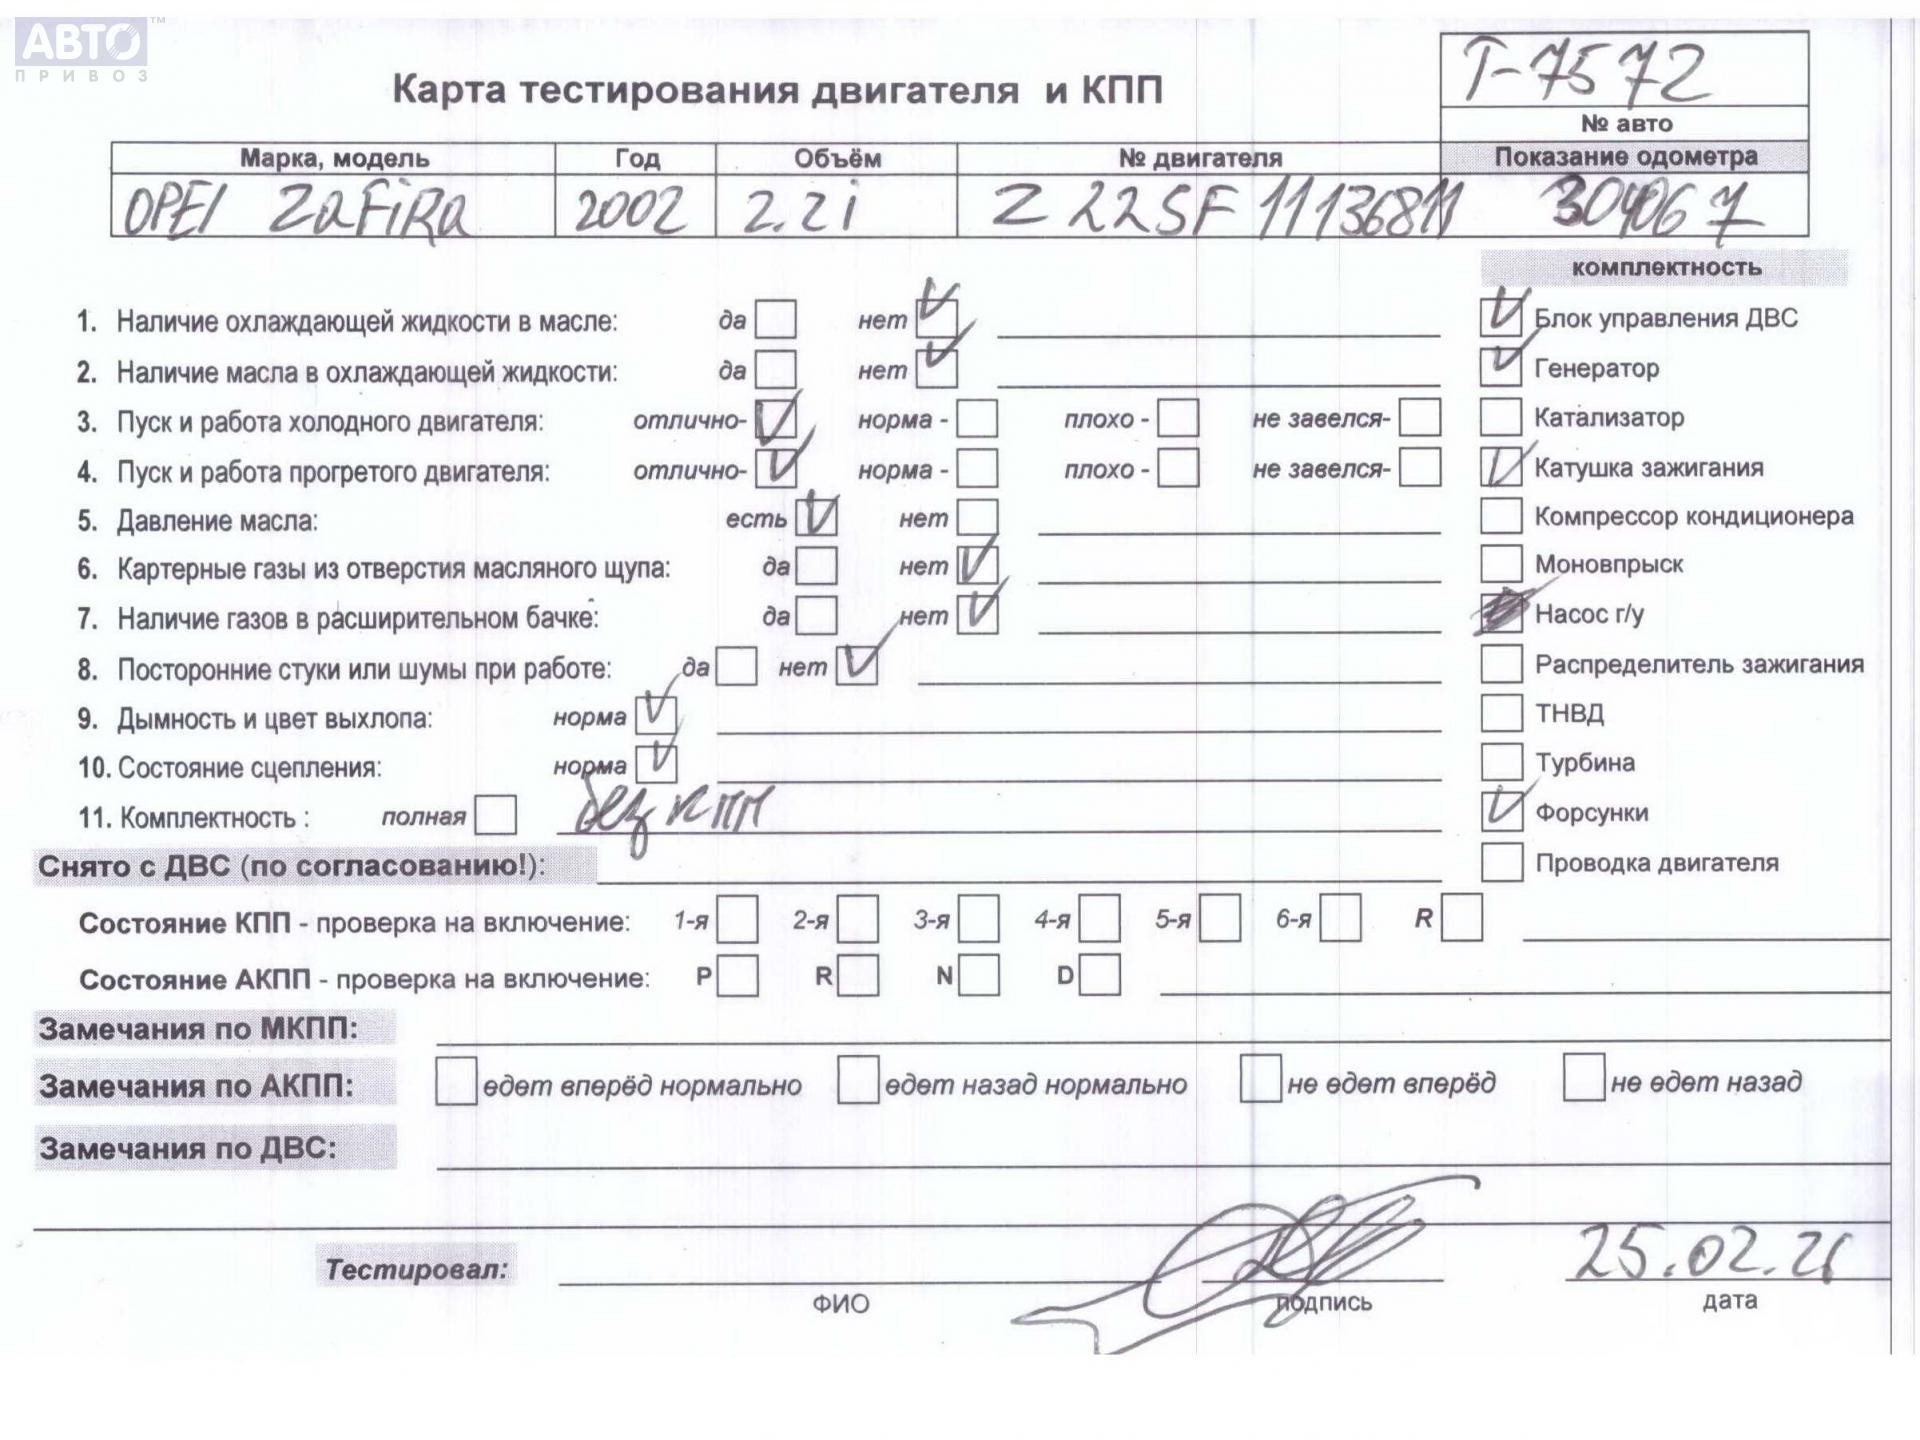 АВТО™
ПРИВОЗ
Карта тестирования двигателя и КПП
T-7572
№ авто
Марка, модель Год Объём № двигателя Показание одометра
OPEl ZaFiRa 2002 2.2i Z 22SF 11136811
комплектность
1. Наличие охлаждающей жидкости в масле: да нет Блок управления ДВС
2. Наличие масла в охлаждающей жидкости: да нет Генератор
3. Пуск и работа холодного двигателя: отлично- норма - плохо - не завелся- Катализатор
4. Пуск и работа прогретого двигателя: отлично- норма - плохо - не завелся- Катушка зажигания
5. Давление масла: есть нет Компрессор кондиционера
6. Картерные газы из отверстия масляного щупа: да нет Моновпрыск
7. Наличие газов в расширительном бачке: да нет Насос г/у
8. Посторонние стуки или шумы при работе: да нет Распределитель зажигания
9. Дымность и цвет выхлопа: норма ТНВД
10. Состояние сцепления: норма Турбина
11. Комплектность : полная без КПП Форсунки
Снято с ДВС (по согласованию!): Проводка двигателя
Состояние КПП - проверка на включение: 1-я 2-я 3-я 4-я 5-я 6-я R
Состояние АКПП - проверка на включение: P R N D
Замечания по МКПП:
Замечания по АКПП: едет вперёд нормально едет назад нормально не едет вперёд не едет назад
Замечания по ДВС:
Тестировал: 25.02.21
ФИО подпись дата